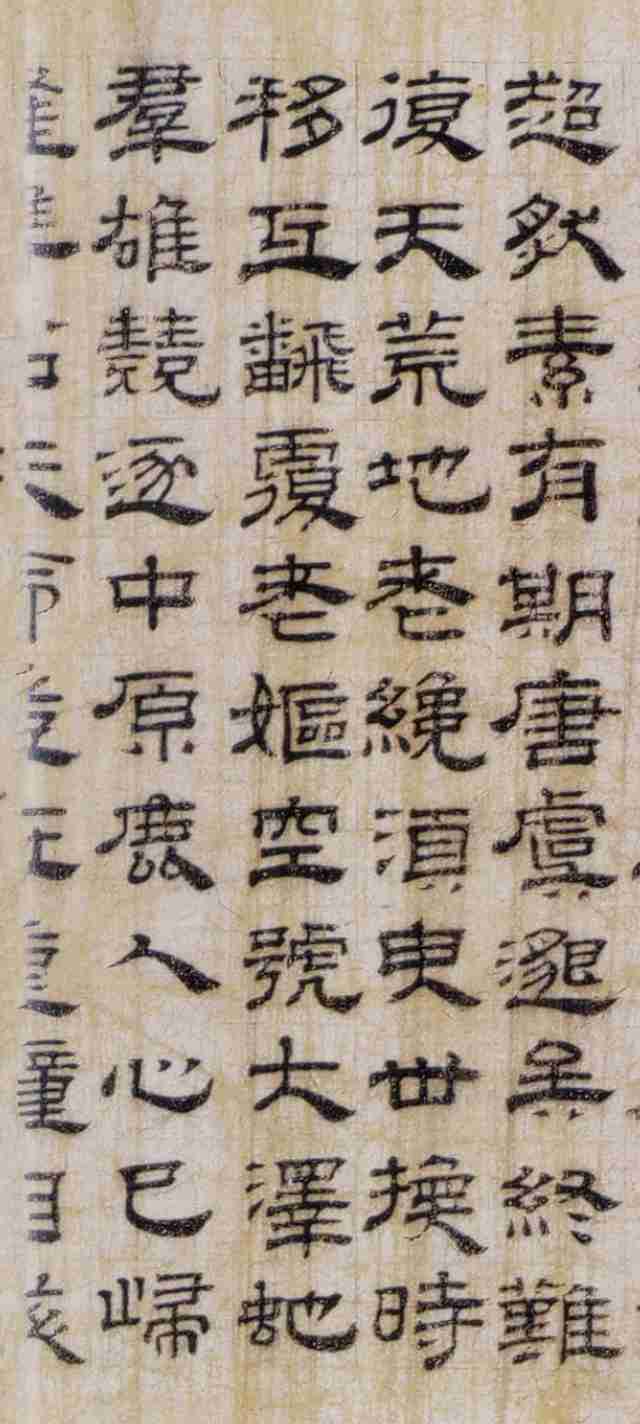 超然素有期唐虞邈矣終難
復天荒地老纔須臾世換時
移互飜覆老嫗空號大澤虵
羣雄競逐中原鹿人心已歸